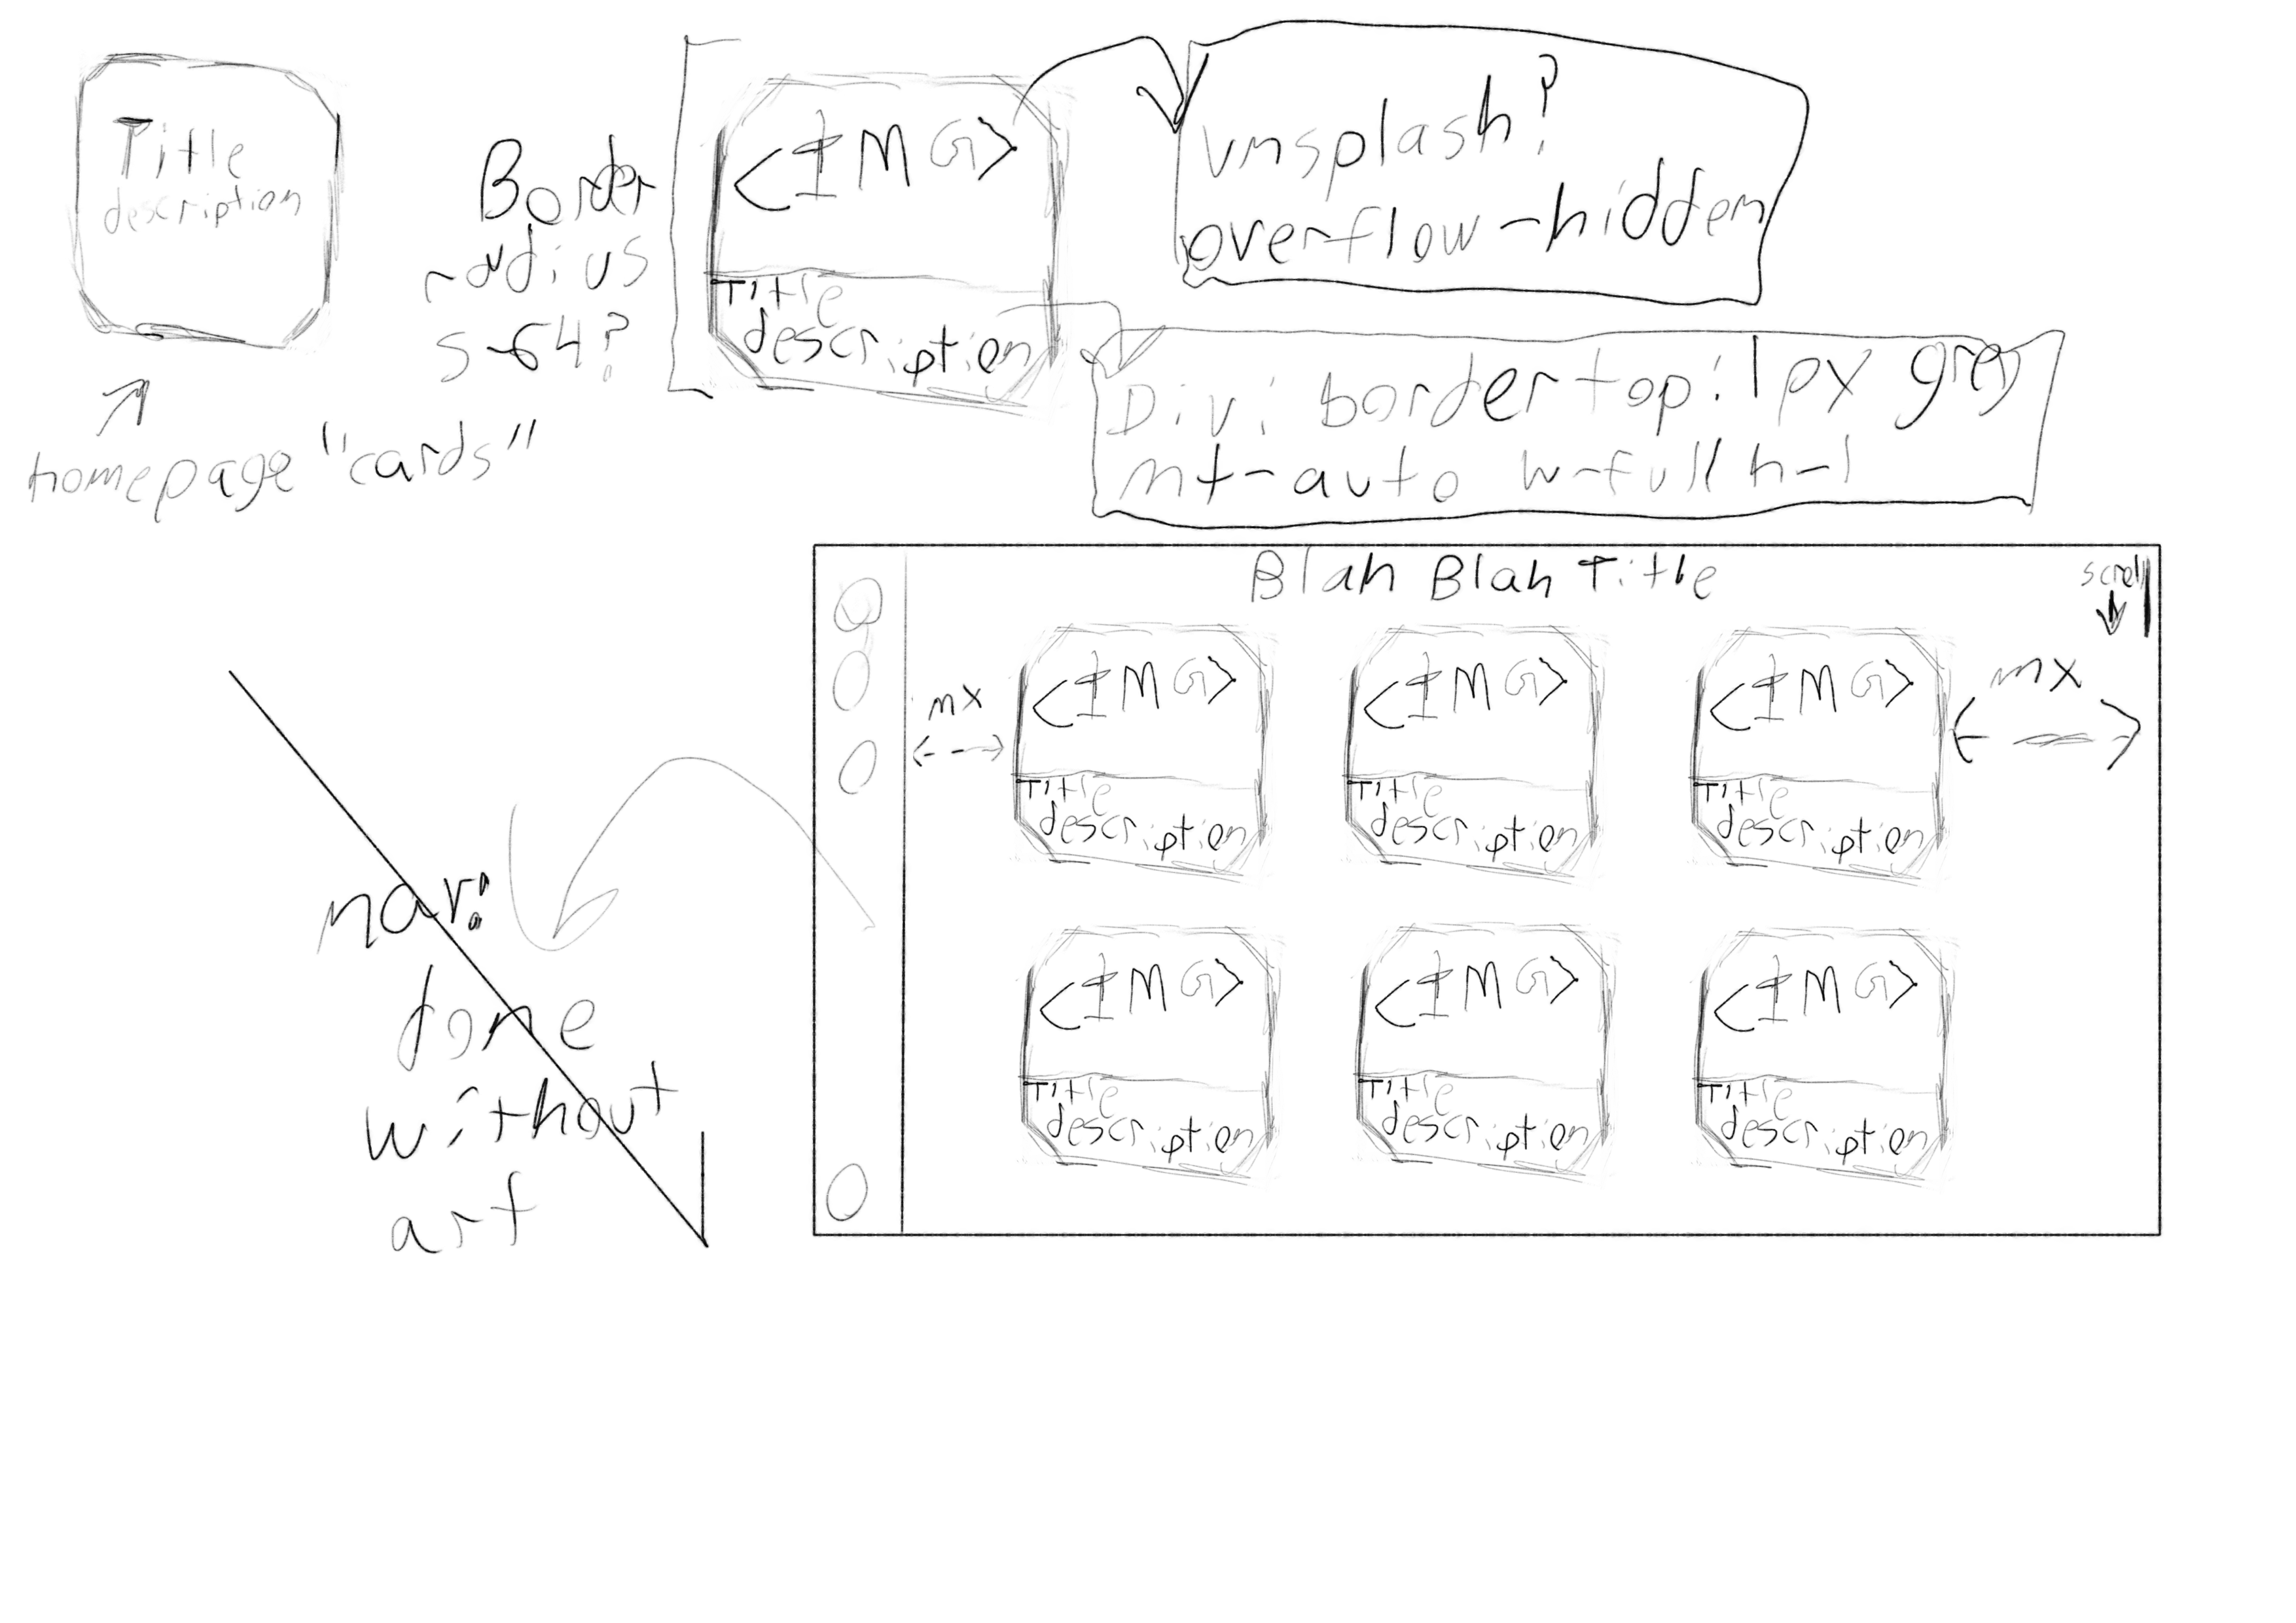 Title
description
homepage "cards"
Border
radius
s-64?
<IMG>
Title
description
unsplash?
overflow-hidden
Div: border top: 1px grey
mt-auto w-full h-1
Blah Blah Title
scroll
mx
mx
<IMG> <IMG> <IMG>
Title Title Title
description description description
<IMG> <IMG> <IMG>
Title Title Title
description description description
nav:
done
without
art